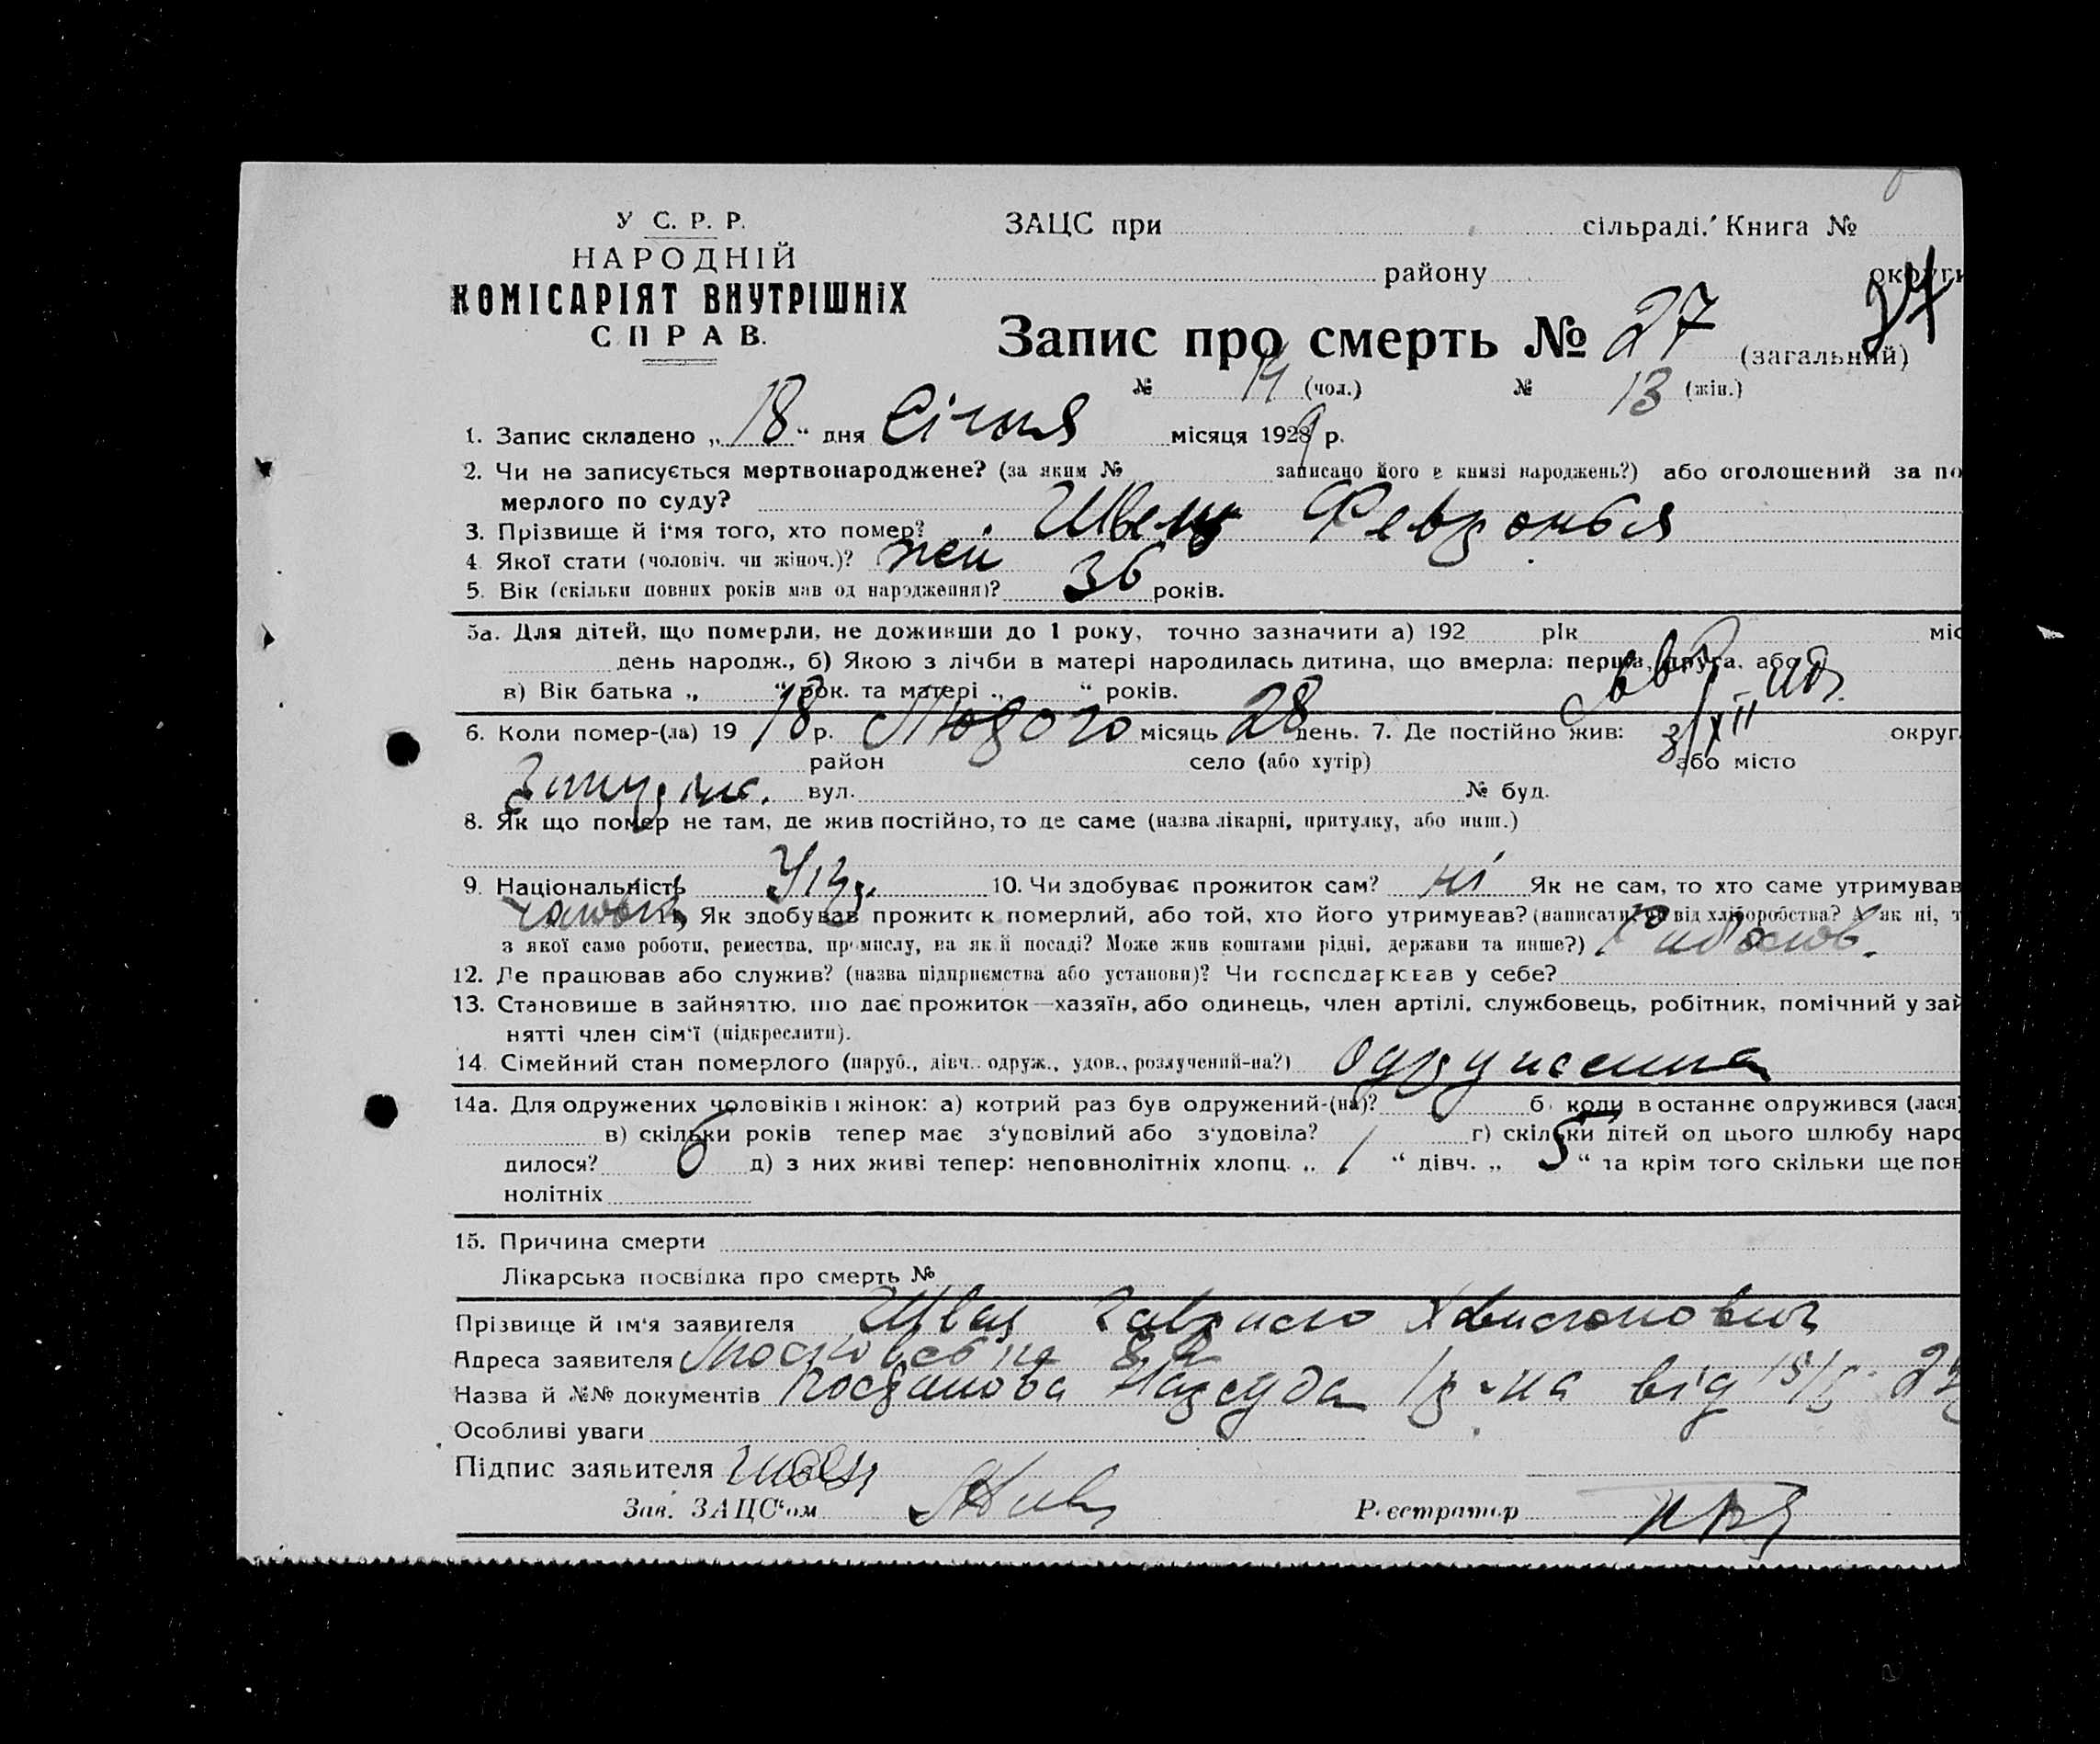 У С. Р. Р.
НАРОДНІЙ
КОМІСАРІЯТ ВНУТРІШНІХ
СПРАВ.
ЗАЦС при сільраді. Книга №
району округи
Запис про смерть № 27 (загальний)
№ 14 (чол.) № 13 (жін.)
1. Запис складено „ 18 “ дня Січня місяця 1929 р.
2. Чи не записується мертвонароджене? (за яким № записано його в книзі народжень?) або оголошений за по
мерлого по суду?
3. Прізвище й і'мя того, хто помер? Швець Февронья
4 Якої стати (чоловіч. чи жіноч.)? жен
5. Вік (скільки повних років мав од народження)? 36 років.
5а. Для дітей, що померли, не доживши до 1 року, точно зазначити а) 192 рік міс
день народж., б) Якою з лічби в матері народилась дитина, що вмерла: перша, друга, або
в) Вік батька „ “ рок. та матері „ “ років.
6. Коли помер-(ла) 19 18 р. Лютого місяць 28 день. 7. Де постійно жив: округ
район село (або хутір) або місто
вул. № буд.
8. Як що помер не там, де жив постійно, то де саме (назва лікарні, притулку, або инш.)
9. Національність Укр. 10. Чи здобуває прожиток сам? ні Як не сам, то хто саме утримував
чоловік 11. Як здобував прожиток померлий, або той, хто його утримував? (написати, чи від хліборобства? А як ні, т
з якої само роботи, ремества, промислу, на якій посаді? Може жив коштами рідні, держави та инше?)
12. Де працював або служив? (назва підприємства або установи)? Чи господарював у себе?
13. Становище в зайняттю, що дає прожиток—хазяїн, або одинець, член артілі, службовець, робітник, помічний у зай
нятті член сім'ї (підкреслити).
14. Сімейний стан померлого (паруб., дівч., одруж., удов., розлучений-на?) одружена
14а. Для одружених чоловіків і жінок: а) котрий раз був одружений-(на)? б) коли востаннє одружився (лася)
в) скільки років тепер має з'удовілий або з'удовіла? г) скільки дітей од цього шлюбу наро
дилося? 6 д) з них живі тепер: неповнолітніх хлопц. „ 1 “ дівч. „ 5 “ та крім того скільки ще пов
нолітніх
15. Причина смерти
Лікарська посвідка про смерть №
Прізвище й ім'я заявителя Швець Гаврило
Адреса заявителя Московська 82
Назва й №№ документів Постанова Нарсуда 1 р-на від
Особливі уваги
Підпис заявителя
Зав. ЗАЦС'ом Реєстратор